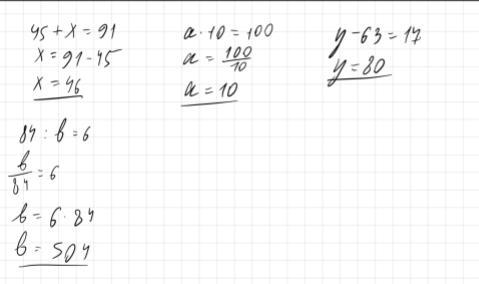 45 + x = 91
x = 91 - 45
x = 46
a · 10 = 100
a = 100/10
a = 10
y - 63 = 17
y = 80
84 : b = 6
b/84 = 6
b = 6 · 84
b = 504